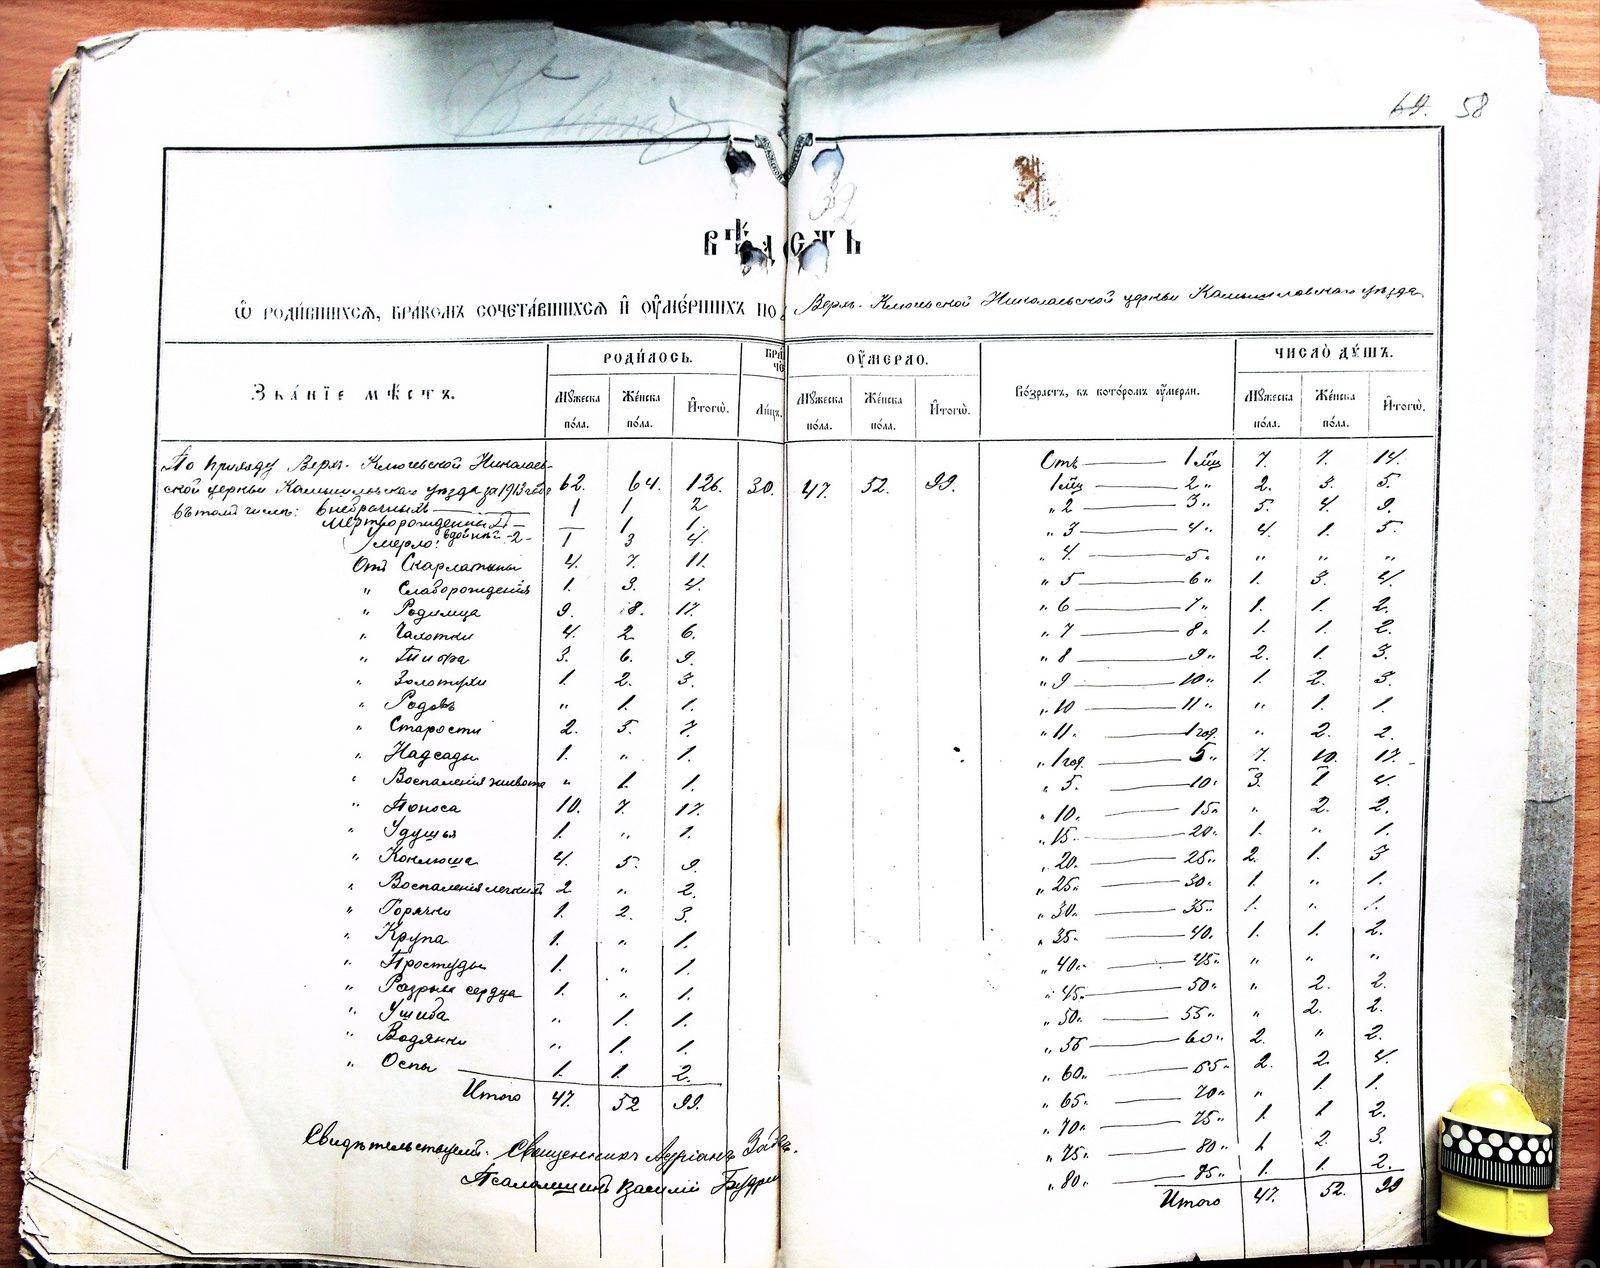 64. 58
32
вѣдомость
Ѽ роди́вшихся, бра́комъ сочета́вшихся и҆ оу҆ме́ршихъ по Верхъ-Ключевской Николаевской церкви Камышловскаго уѣзда
Зва́нїе мѣстъ. роди́лось. бра́ оу҆мерло. Во́зрастъ, въ кото́ромъ оу҆мерли. число̀ ду́шъ.
Мꙋжеска пола. Же́нска по́ла. И҆тогѡ̀. Ли́цъ. Мꙋжеска по́ла. Же́нска по́ла. И҆тогѡ̀. Мꙋжеска по́ла. Же́нска по́ла. И҆тогѡ̀.
По приходу Верх-Ключевской Николаев-
ской церкви Камышловскаго уѣзда за 1913 годъ 62. 64. 126. 30. 47. 52. 99.
въ томъ числѣ: внебрачныхъ 1 1 2
мертворожденныхъ — 1. 1.
Умерло: двойней -2- 1 3 4.
Отъ Скарлатины 4. 7. 11.
" Слаборожденія 1. 3. 4.
" Родимца 9. 8. 17.
" Чахотки 4. 2. 6.
" Тифа 3. 6. 9.
" Золотухи 1. 2. 3.
" Родовъ " 1. 1.
" Старости 2. 5. 7.
" Надсады 1. " 1.
" Воспаленія живота " 1. 1.
" Поноса 10. 7. 17.
" Удушья 1. " 1.
" Коклюша 4. 5. 9.
" Воспаленія легкихъ 2. " 2.
" Горячки 1. 2. 3.
" Крупа 1. " 1.
" Простуды 1. " 1.
" Разрыв сердца 1. " 1.
" Ушиба " 1. 1.
" Водянки " 1. 1.
" Оспы 1. 1. 2.
Итого 47. 52 99.
Свидѣтельствуемъ: Священникъ
Псаломщикъ Василій
Отъ 1 мѣс 7. 7. 14.
1 мѣс 2 " 2. 3. 5.
" 2 3 " 5. 4. 9.
" 3 4 " 4. 1. 5.
" 4. 5 " " " "
" 5 6 " 1. 3. 4.
" 6 7 " 1. 1. 2.
" 7 8 " 1. 1. 2.
" 8 9 " 2. 1. 3.
" 9 10 " 1. 2. 3.
" 10 11 " " 1. 1.
" 11. 1 год. " 2. 2.
" 1 год. 5 " 7. 10. 17.
" 5. 10 " 3. 1 4.
" 10. 15 " " 2. 2.
" 15. 20 " 1. " 1.
" 20. 25 " 2. 1. 3
" 25 " 30 " 1. " 1.
" 30 " 35 " 1. " 1.
" 35 " 40. 1. 1. 2.
" 40 " 45 " " " "
" 45 " 50 " " 2. 2.
" 50 " 55 " " 2. 2.
" 55 60 " 2. " 2.
" 60 " 65 " 2. 2. 4.
" 65 " 70 " " 1. 1.
" 70 " 75 " 1. 1 2.
" 75 " 80 " 1 2. 3.
" 80 " 85 " 1. 1. 2.
Итого 47. 52. 99